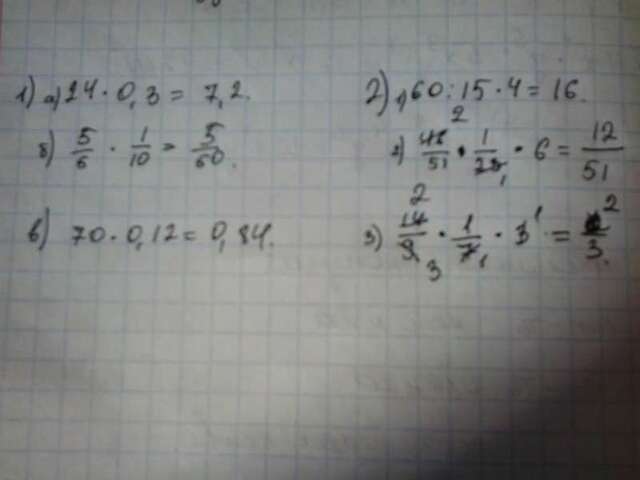 1) а) 24 · 0,3 = 7,2.
б) 5/6 · 1/10 = 5/60.
в) 70 · 0,12 = 0,84.
2) 1) 60 : 15 · 4 = 16.
2
2) /51 · 1/ 1 · 6 = 12/51
2
3) 14/9 3 · 1/7 1 · 3 1 = 2/3.